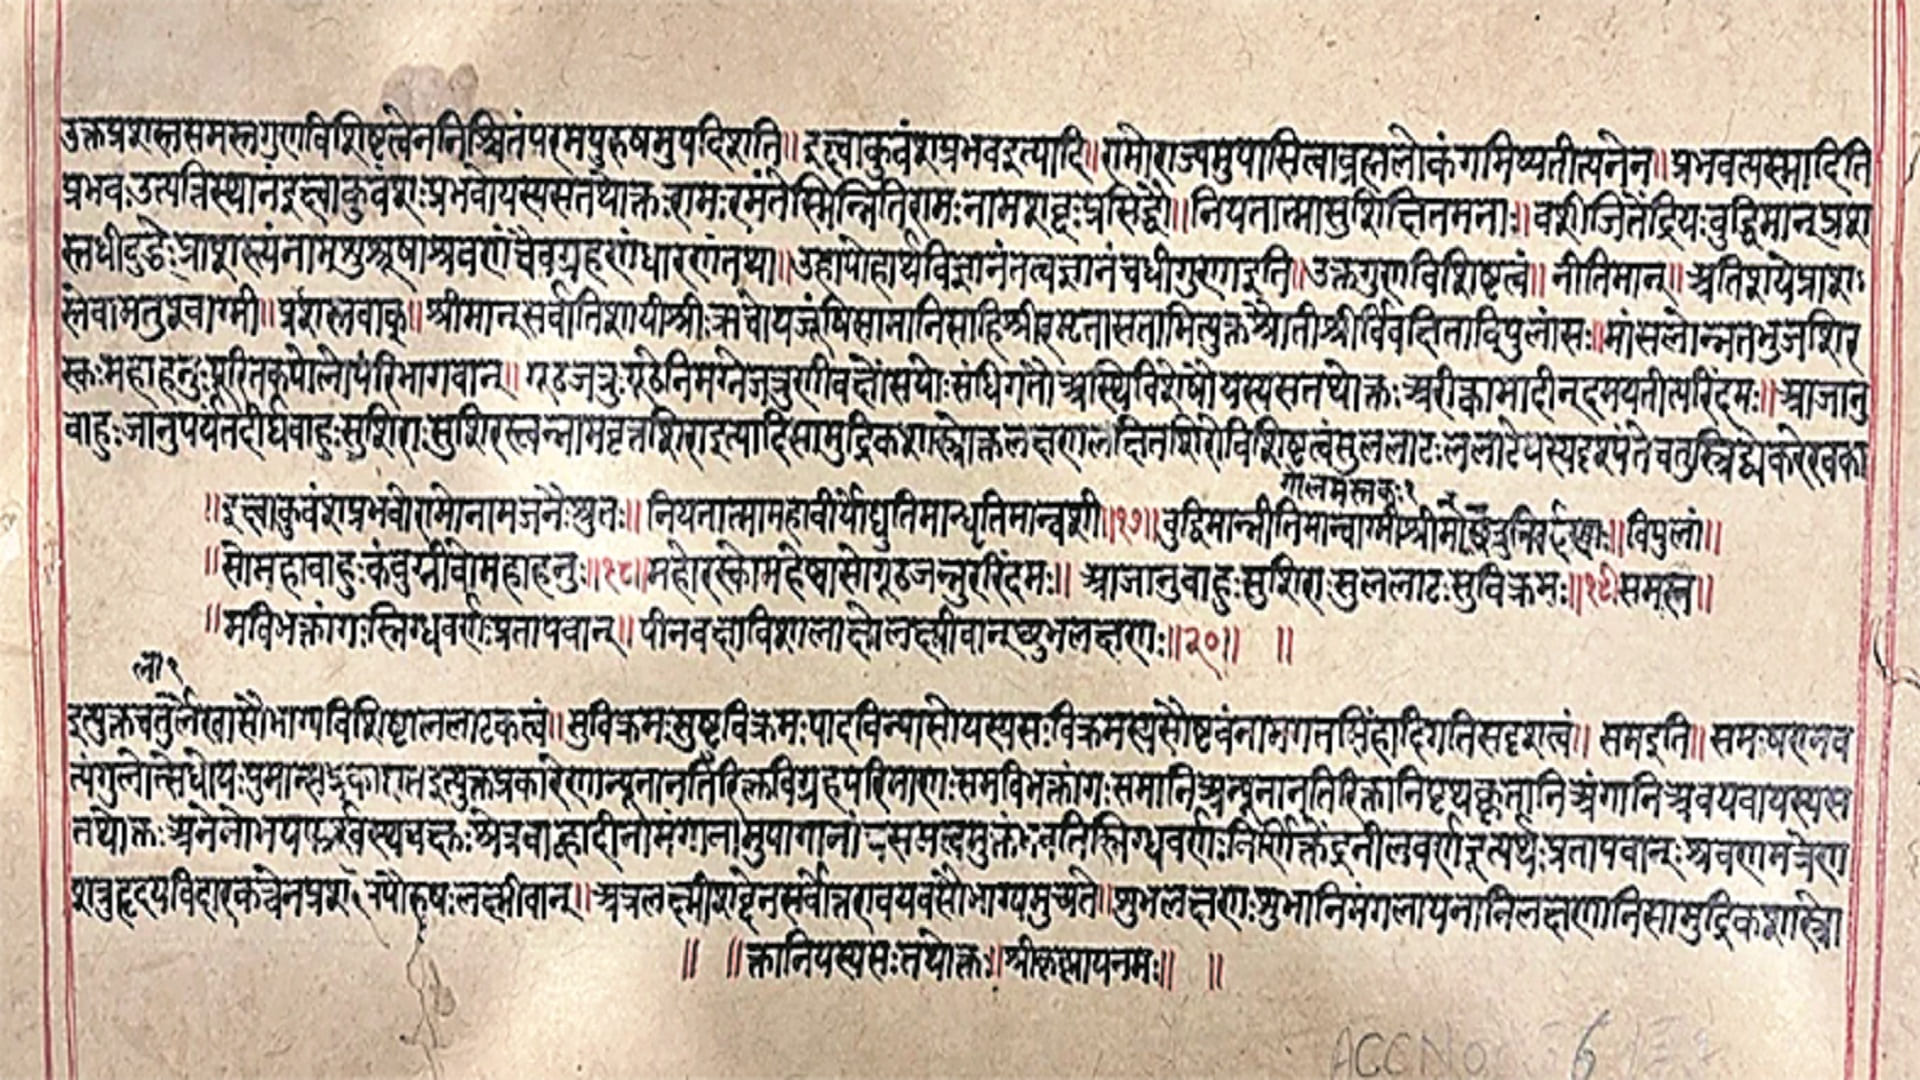 उक्तप्रशस्तसमस्तगुणविशिष्टत्वेननिश्चितंपरमपुरुषमुपदिशति॥ इक्ष्वाकुवंशप्रभवइत्यादि॥ रामोराज्यमुपासित्वाब्रह्मलोकंगमिष्यतीत्यनेन॥ प्रभवत्यस्मादिति
प्रभवःउत्पत्तिस्थानंइक्ष्वाकुवंशःप्रभवोयस्यसतथोक्तःरामःरमंतेस्मिन्नितिरामःनामशब्दःप्रसिद्धौ॥ नियतात्मासुशिक्षितमनाः॥ वशीजितेंद्रियःबुद्धिमान्प्रश
स्तधीः प्राशस्त्यंनामशुश्रूषाश्रवणंचैवग्रहणंधारणंतथा॥ उहापोहार्थविज्ञानंतत्वज्ञानंचधीगुणाइति॥ उक्तगुणविशिष्टत्वं॥ नीतिमान्॥ अतिशयेप्राश
वाग्मी॥ प्रशस्तवाक्॥ श्रीमान्सर्वातिशायीश्रीःऋचोयजूंषिसामानिसाहिश्रीरमृतासतामित्युक्तश्रौतीश्रीर्विवक्षिताविपुलांसः॥ मांसलोन्नतभुजशिर
स्कःमहाहनुःपूरितकपोलोपरिभागवान्॥ गूढजत्रुःगूढेनिमग्नेजत्रुणीवक्षोंसयोःसंधिगतौअस्थिविशेषौयस्यसतथोक्तःअरीन्कामादीन्दमयतीत्यरिंदमः॥ आजानु
बाहुःजानुपर्यंतदीर्घबाहुःसुशिराःसुशिरस्त्वन्नामवृत्तशिराइत्यादिसामुद्रिकशास्त्रोक्तलक्षणलक्षितशिरोविशिष्टत्वंसुललाटःललाटेयस्यदृश्यंतेचतुस्त्रिद्व्येकरेखका
॥इक्ष्वाकुवंशप्रभवोरामोनामजनैःश्रुतः॥ नियतात्मामहावीर्योद्युतिमान्धृतिमान्वशी॥१७॥बुद्धिमान्नीतिमान्वाग्मीश्रीमांछत्रुनिबर्हणः॥विपुलां॥
॥सोमहाबाहुःकंबुग्रीवोमहाहनुः॥१८॥महोरस्कोमहेष्वासोगूढजत्रुररिंदमः॥ आजानुबाहुःसुशिराःसुललाटःसुविक्रमः॥१९॥समस्स॥
॥मविभक्तांगःस्निग्धवर्णःप्रतापवान्॥ पीनवक्षाविशालाक्षोलक्ष्मीवान्शुभलक्षणः॥२०॥ ॥
इत्युक्तचतुर्लेखासौभाग्यविशिष्टललाटकत्वं॥ सुविक्रमःसुष्टुविक्रमःपादविन्यासोयस्यसःविक्रमस्यसौष्टवंनामगजसिंहादिगतिसदृशत्वं॥ समइति॥ समःषण्नव
त्यंगुलोत्सेधोयःपुमान् इत्युक्तप्रकारेणान्यूनानतिरिक्तविग्रहपरिमाणःसमविभक्तांगःसमानिअन्यूनानतिरिक्तानिपृथक्कृतानिअंगानिअवयवायस्यस
तथोक्तःअनेनोभय बाह्वादीनामंगानामुपांगानां समत्वमुक्तंभवतिस्निग्धवर्णः इंद्रनीलवर्णइत्यर्थःप्रतापवान्ःश्रवणमात्रेण
शत्रुहृदयविदारकत्वेनप्रश पौरुषःलक्ष्मीवान्॥ अत्रलक्ष्मीशब्देनसर्वोत्तरावयवसौभाग्यमुच्यते॥शुभलक्षणःशुभानिमंगलायनानिलक्षणानिसामुद्रिकशास्त्रो
॥ ॥क्तानियस्यसःतथोक्तः॥श्रीकृष्णायनमः॥ ॥
ACC No. 6